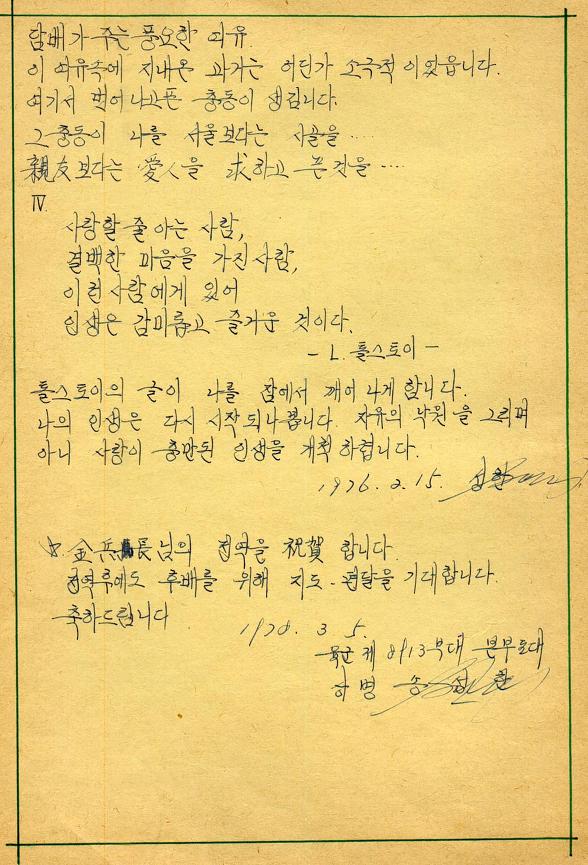 담배가 주는 풍요한 여유.
이 여유속에 지내온 과거는 어딘가 소극적 이었읍니다.
여기서 벗어나고픈 충동이 생깁니다.
그 충동이 나를 서울보다는 시골을 ....
親友보다는 愛人을 求하고 픈것을 ....
Ⅳ.
사랑할 줄 아는 사람,
결백한 마음을 가진 사람,
이런 사람에게 있어
인생은 감미롭고 즐거운 것이다.
- L. 톨스토이 -
톨스토이의 글이 나를 잠에서 깨어나게 합니다.
나의 인생은 다시 시작 되나봅니다. 자유의 낙원을 그리며
아니 사랑이 충만된 인생을 개척 하렵니다.
1976. 2. 15.
金兵長님의 전역을 祝賀 합니다.
전역후에도 후배를 위해 지도-편달을 기대합니다.
축하드립니다
1978. 3. 5.
육군 제 8913부대 본부포대
하병 송